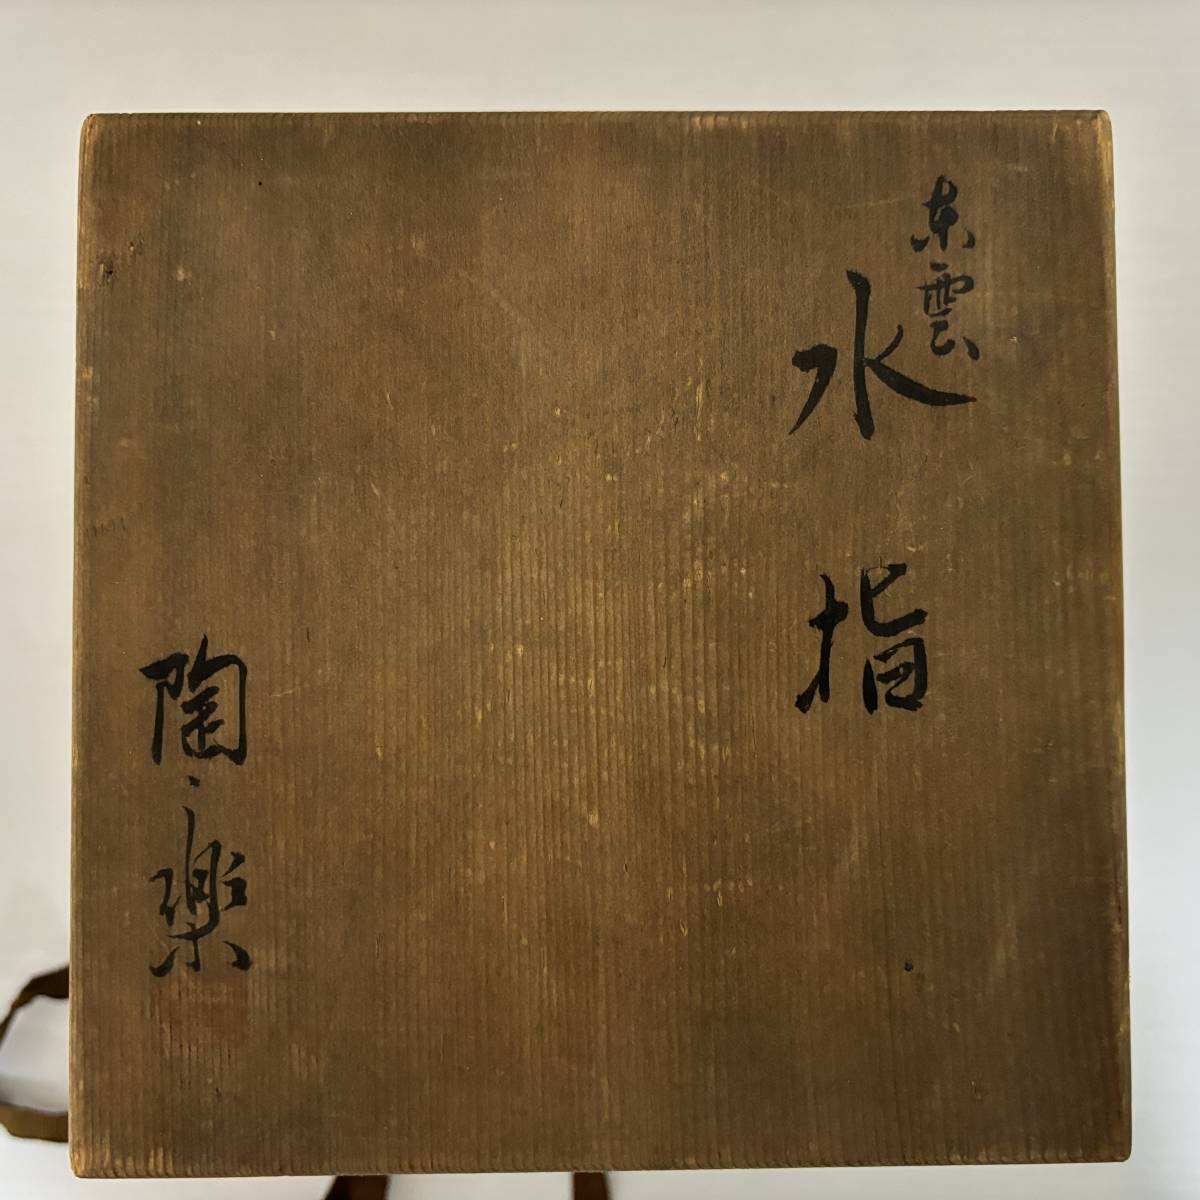 東雲
水指
陶楽